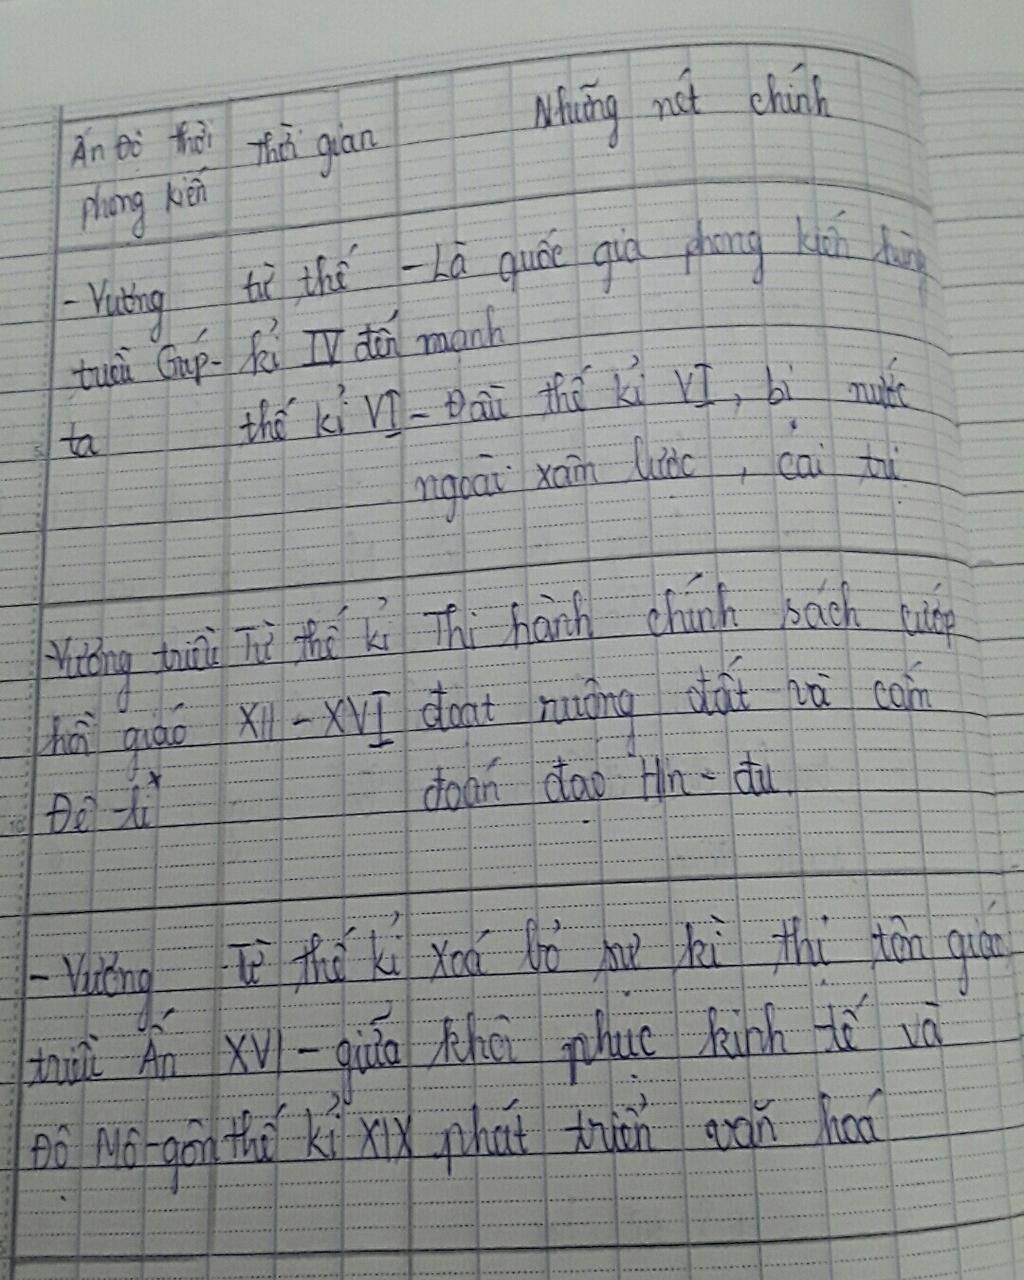 Ấn Độ thời thời gian Những nét chính
phong kiến
- Vương từ thế - Là quốc gia phong kiến hùng
triều Gúp- kỉ IV đến mạnh
ta thế kỉ VI - Đầu thế kỉ VI, bị nước
ngoài xâm lược, cai trị
- Vương triều Từ thế kỉ Thi hành chính sách cướp
hồi giáo XII - XVI đoạt ruộng đất và cấm
Đê-li đoán đạo Hin-đu.
- Vương Từ thế kỉ xoá bỏ sự kì thị tôn giáo
triều Ấn XVI - giữa khôi phục kinh tế và
Độ Mô-gôn thế kỉ XIX phát triển văn hoá